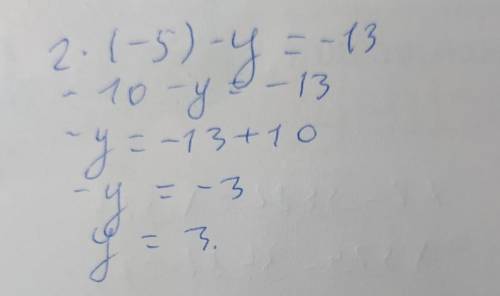 2·(-5)-y=-13
-10-y=-13
-y=-13+10
-y=-3
y=3.